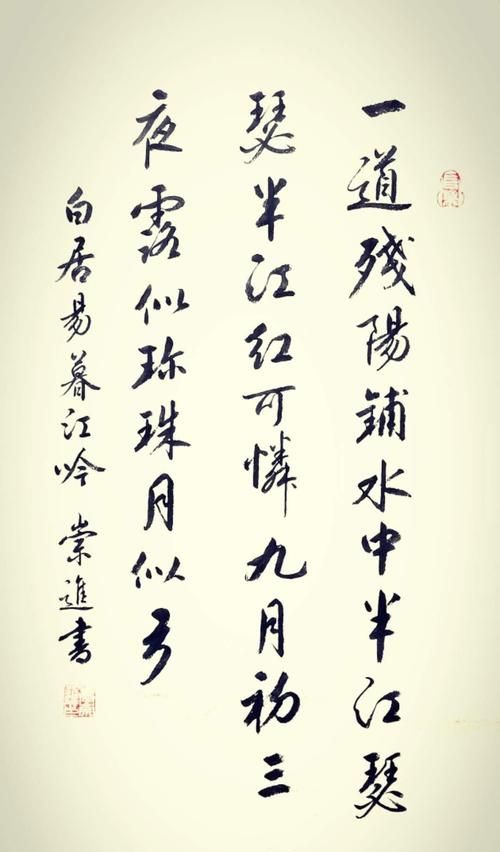 一道殘陽鋪水中半江瑟
瑟半江紅可憐九月初三
夜露似珍珠月似弓
白居易暮江吟 崇進書